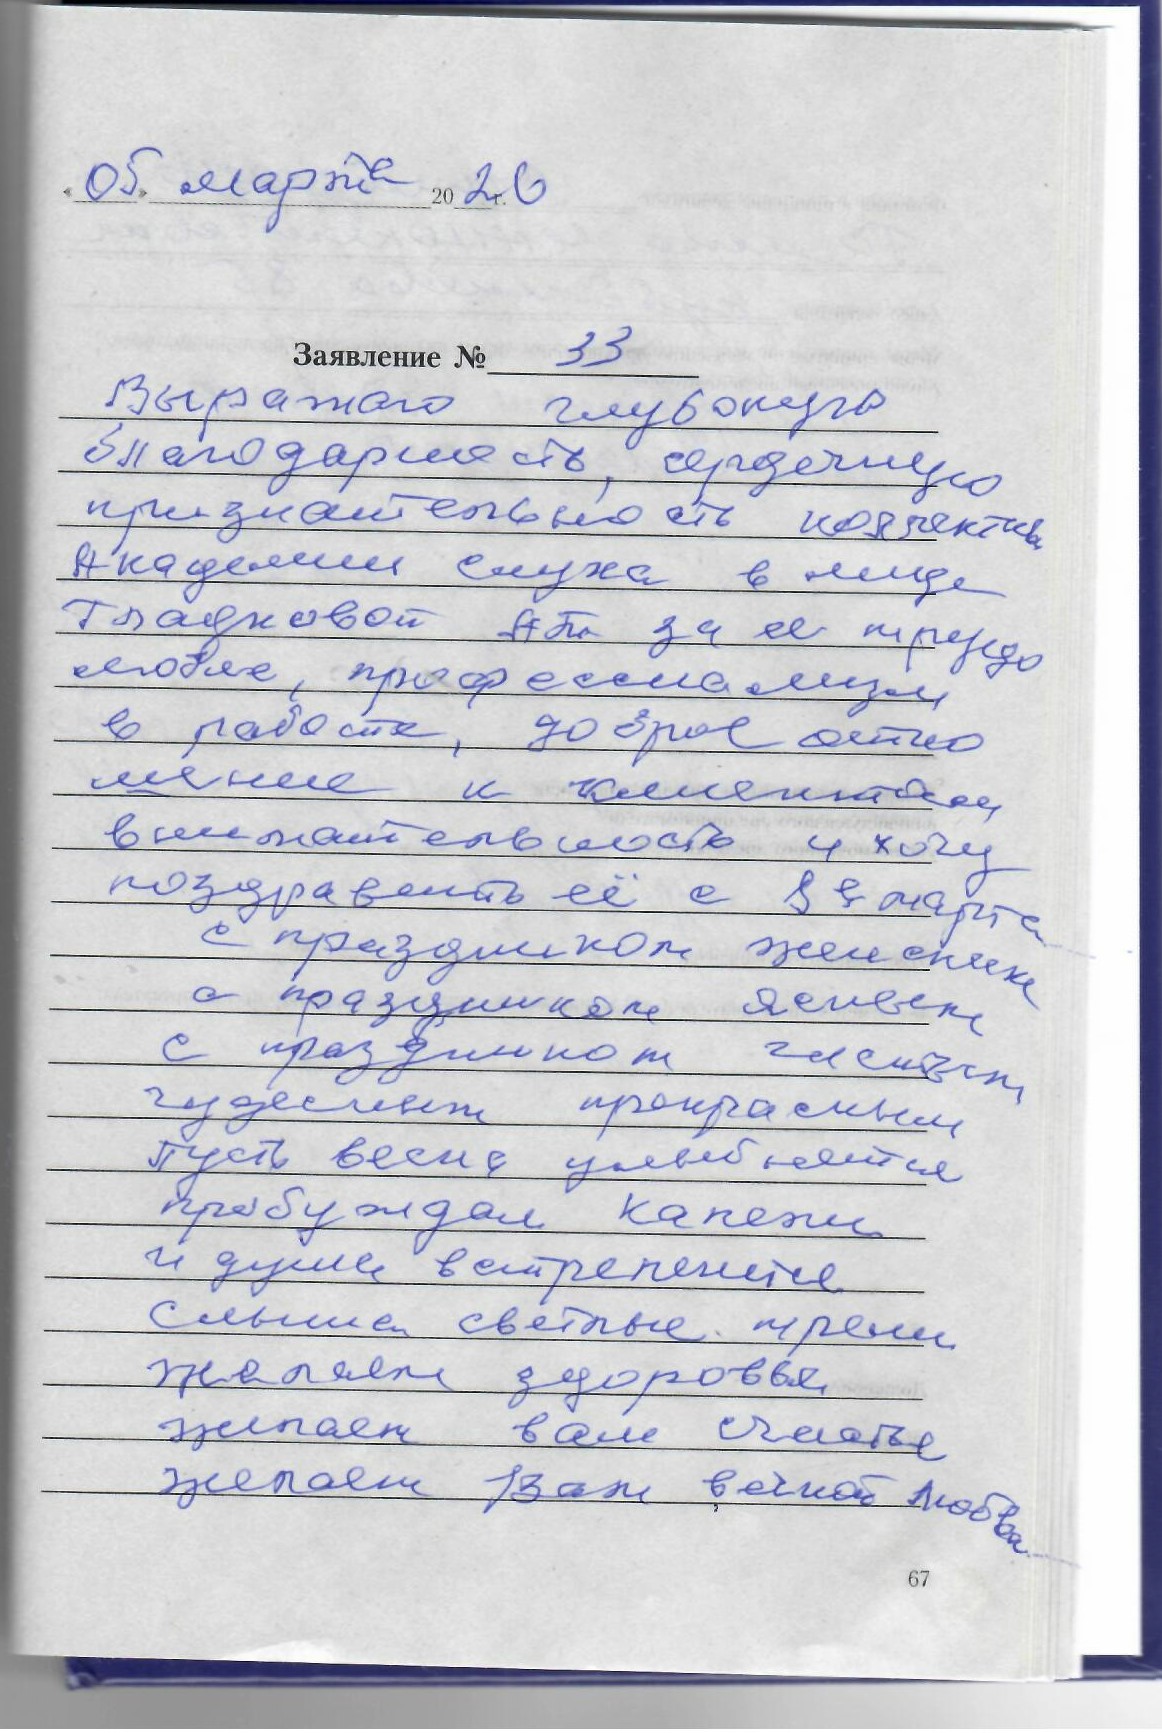 « 05 » марта 20 26 г.
Заявление № 33
Выражаю глубокую
благодарность, сердечную
признательность коллектив
Академии слуха в лице
Гладковой за ее трудо
любие, профессионализм
в работе, доброе отно
шение к клиентам
внимательность и хочу
поздравить её с 8 марта
с праздником женским
с праздником ясным
с праздником
чудесным прекрасным
Пусть весна улыбнется
пробуждая капели
и душа встрепенется
слыша светлые трели
желаем здоровья
желаем вам счастья
желаем Вам вечной любви
67